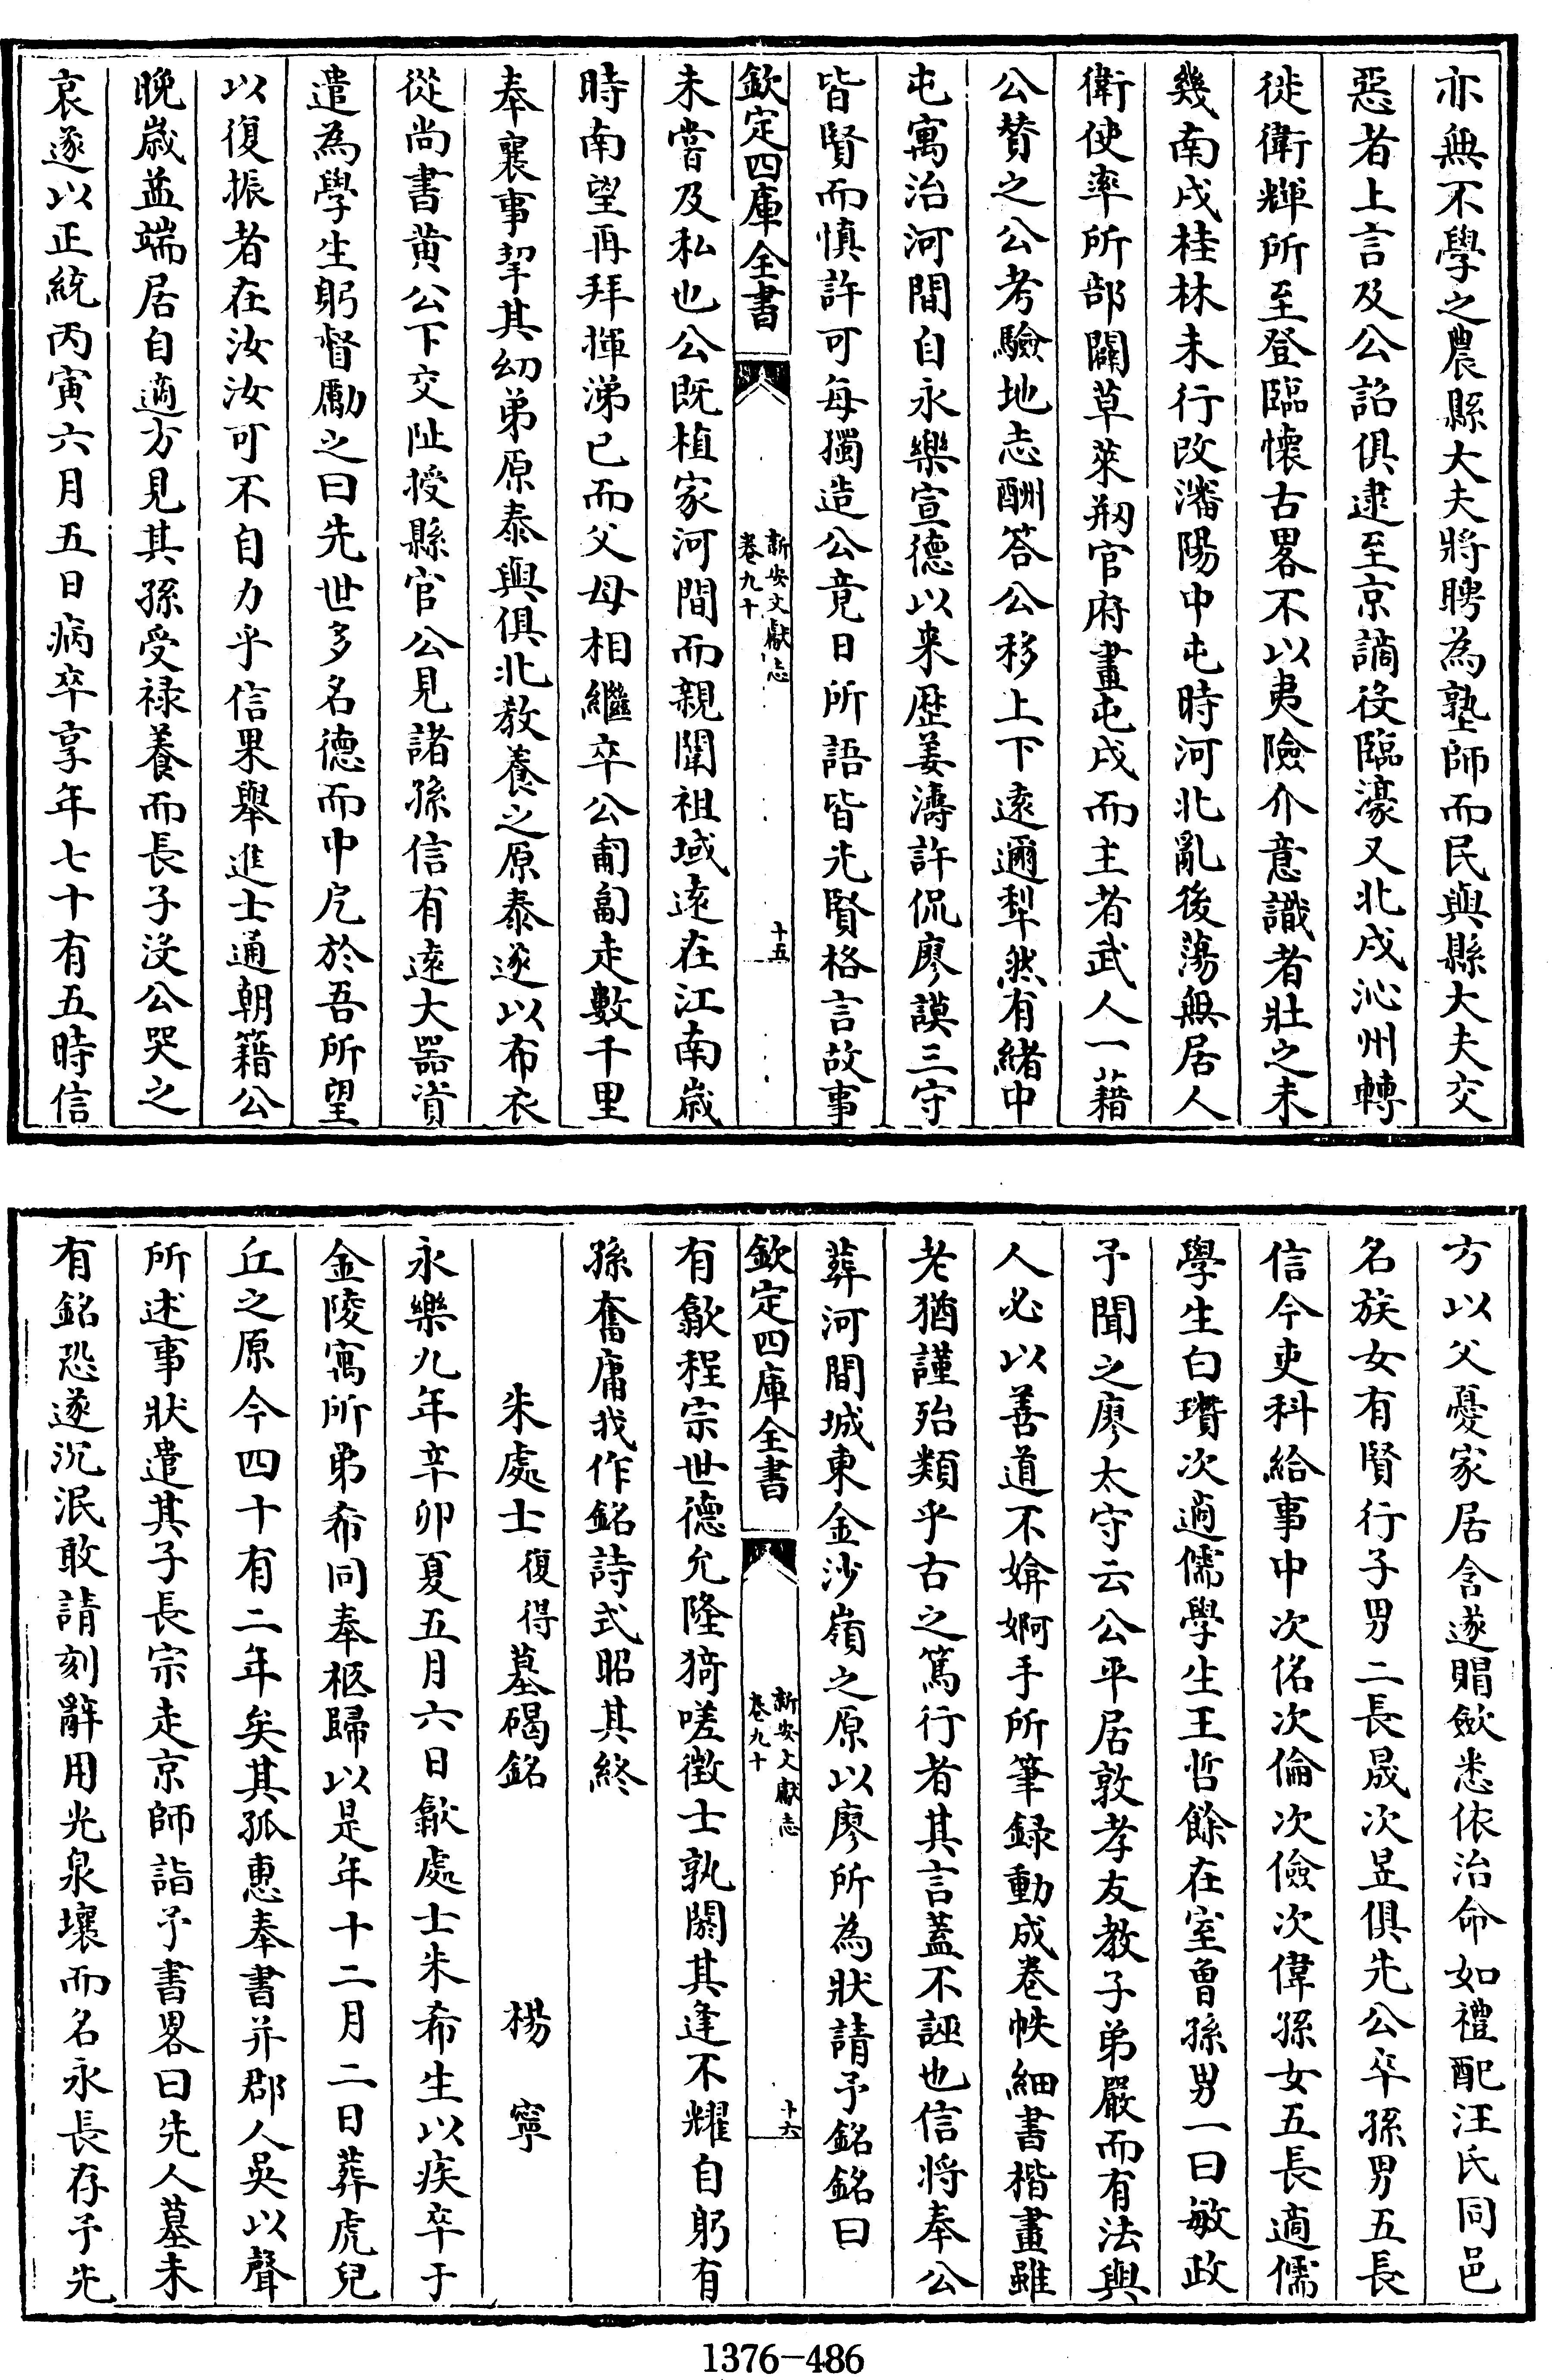 亦無不學之農縣大夫將聘為塾師而民與縣大夫交
惡者上言及公詔俱逮至京謫役臨濠又北戍沁州轉
徙衛輝所至登臨懷古畧不以夷險介意識者壯之未
幾南戍桂林未行改瀋陽中屯時河北亂後蕩無居人
衛使率所部闢草萊剏官府畫屯戍而主者武人一藉
公賛之公考驗地志酬答公移上下遠邇犁然有緒中
屯寓治河間自永樂宣德以来歴姜濤許侃廖謨三守
皆賢而慎許可每獨造公竟日所語皆先賢格言故事
欽定四庫全書 新安文獻志 卷九十 十五
未嘗及私也公既植家河間而親闈祖域遠在江南歳
時南望再拜揮涕已而父母相繼卒公匍匐走數千里
奉襄事挈其幼弟原泰與俱北教養之原泰遂以布衣
從尚書黄公下交阯授縣官公見諸孫信有遠大器資
遣為學生躬督勵之曰先世多名德而中戹於吾所望
以復振者在汝汝可不自力乎信果舉進士通朝籍公
晚歳益端居自適方見其孫受禄養而長子沒公哭之
哀遂以正統丙寅六月五日病卒享年七十有五時信
方以父憂家居含遂賵歛悉依治命如禮配汪氏同邑
名族女有賢行子男二長晟次昱俱先公卒孫男五長
信今吏科給事中次佲次倫次儉次偉孫女五長適儒
學生白瓚次適儒學生王哲餘在室曾孫男一曰敏政
予聞之廖太守云公平居敦孝友教子弟嚴而有法與
人必以善道不媕婀手所筆録動成卷帙細書楷畫雖
老猶謹殆類乎古之篤行者其言蓋不誣也信將奉公
葬河間城東金沙嶺之原以廖所為狀請予銘銘曰
欽定四庫全書 新安文獻志 卷九十 十六
有歙程宗世德允隆猗嗟徴士孰閼其逢不耀自躬有
孫奮庸我作銘詩式昭其終
朱處士復得墓碣銘 楊 寧
永樂九年辛卯夏五月六日歙處士朱希生以疾卒于
金陵寓所弟希同奉柩歸以是年十二月二日葬虎兒
丘之原今四十有二年矣其孤惠奉書并郡人吳以聲
所述事狀遣其子長宗走京師詣予書畧曰先人墓未
有銘恐遂沉泯敢請刻辭用光泉壤而名永長存予先
1376-486